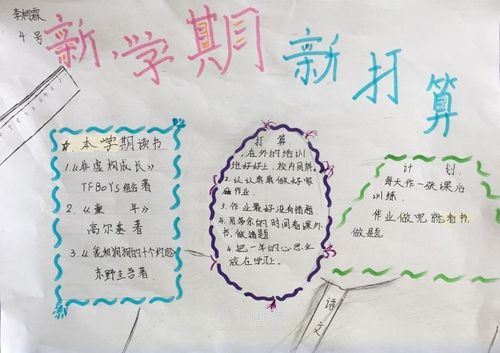 4号
新学期
新打算
本学期读书
1.《非虚构成长》
TFBOYS组合著
2.《童年》
高尔基著
东野圭吾著
打算
1.在外的培训
班好好上，校内同样。
2.认认真真做好家
庭作业。
3.作业最好没有错题
4.用多余的时间看课外
书，做错题
4.把一年的心思全
放在学习上。
计划
每天作一张课后
训练。
作业做吧就看书
做题。
语文